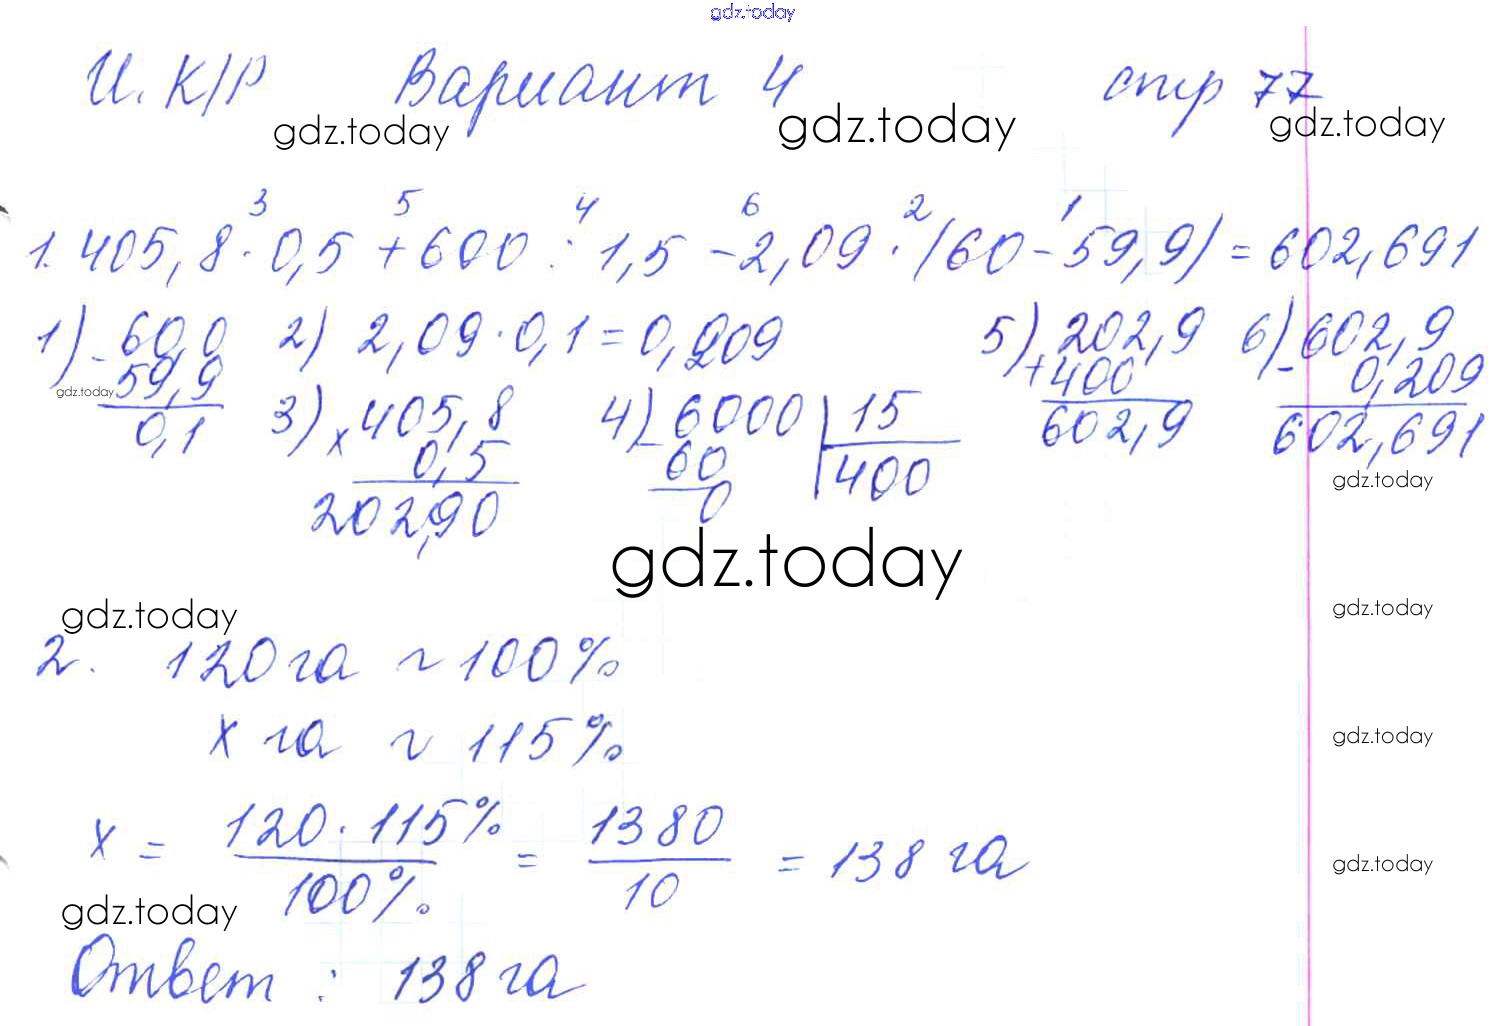 gdz.today
И. К/Р Вариант 4 стр 77
gdz.today gdz.today gdz.today
3 5 4 6 2 1
1. 405,8 · 0,5 + 600 : 1,5 - 2,09 · (60 - 59,9) = 602,691
1) - 60,0 2) 2,09 · 0,1 = 0,209 5) 202,9 6) - 602,9
gdz.today 59,9 + 400 0,209
0,1 3) x 405,8 4) - 6000 | 15 602,9 602,691
0,5 60 400
202,90 0 gdz.today
gdz.today
gdz.today gdz.today
2. 120 га ~ 100%
x га ~ 115% gdz.today
x = 120 · 115% / 100% = 1380 / 10 = 138 га gdz.today
gdz.today
Ответ : 138 га